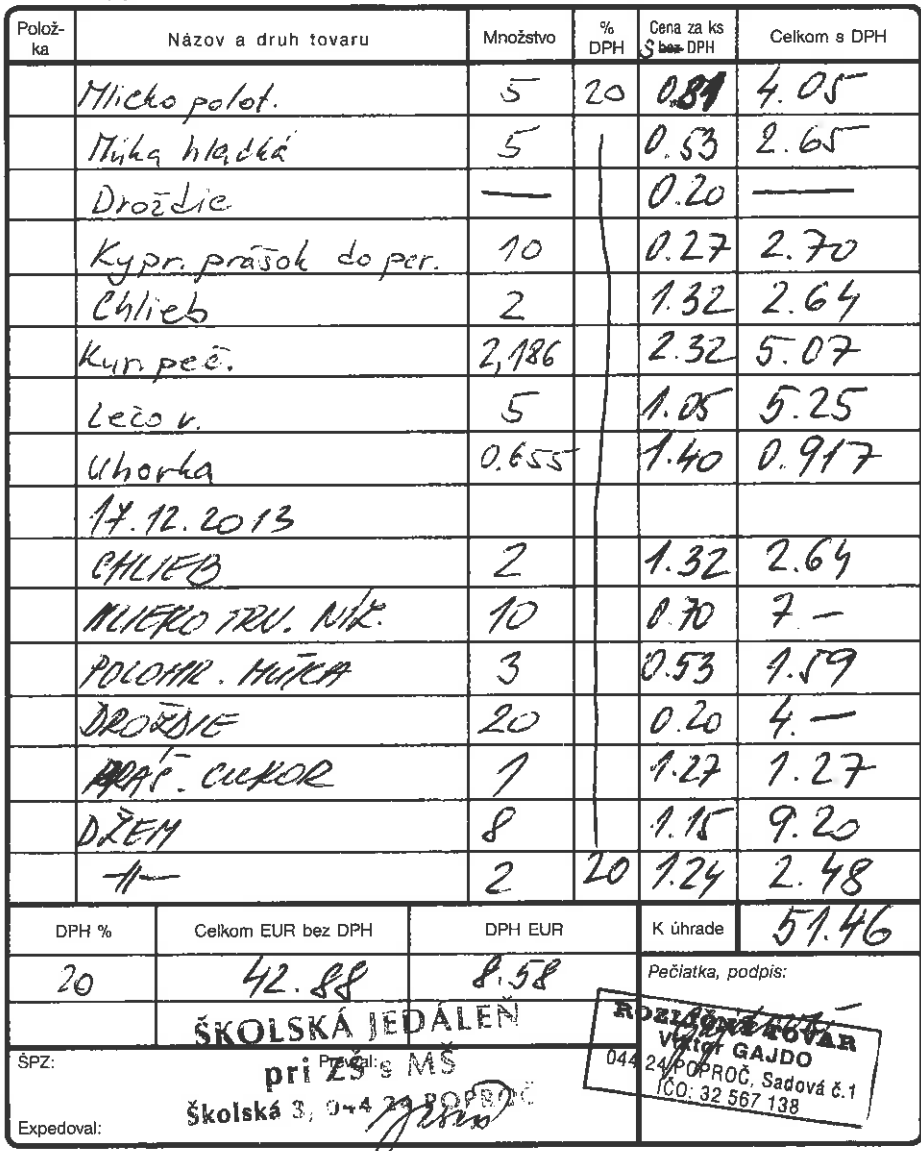 Polož- ka Názov a druh tovaru Množstvo % DPH Cena za ks S bez DPH Celkom s DPH
Mlieko polot. 5 20 0.81 4.05
Múka hladká 5 0.53 2.65
Droždie — 0.20 —
Kypr. prášok do per. 10 0.27 2.70
Chlieb 2 1.32 2.64
Kur. peč. 2,186 2.32 5.07
Lečo v. 5 1.05 5.25
Uhorka 0.655 1.40 0.917
17.12.2013
CHLIEB 2 1.32 2.64
MLIEKO TRV. NÍZ. 10 0.70 7 —
POLOHR. MÚKA 3 0.53 1.59
DROŽDIE 20 0.20 4. —
PRÁŠ. CUKOR 1 1.27 1.27
DŽEM 8 1.15 9.20
—||— 2 20 1.24 2.48
DPH % Celkom EUR bez DPH DPH EUR K úhrade 51.46
20 42.88 8.58 Pečiatka, podpis:
ŠKOLSKÁ JEDÁLEŇ
pri ZŠ s MŠ
Školská 3, 044 24 POPROČ
ŠPZ:
Expedoval:
ROZLIČNÝ TOVAR
Viktor GAJDO
044 24 POPROČ, Sadová č.1
IČO: 32 567 138